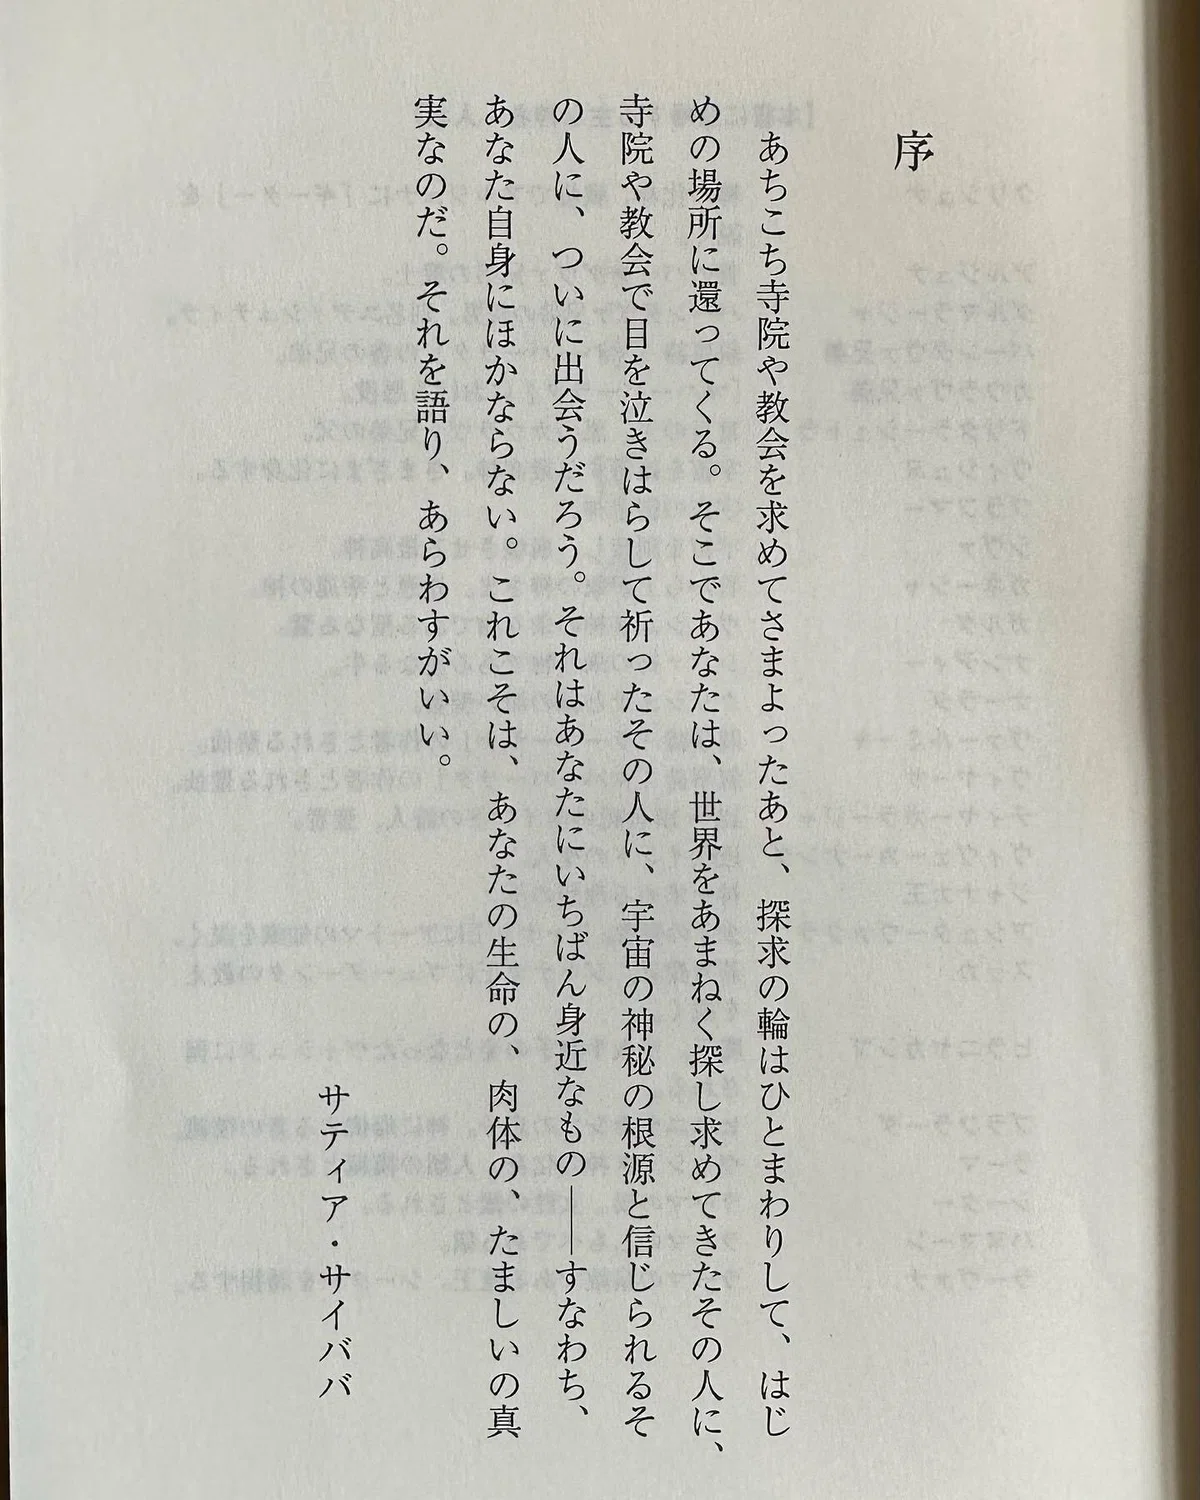 序
あちこち寺院や教会を求めてさまよったあと、探求の輪はひとまわりして、はじ
めの場所に還ってくる。そこであなたは、世界をあまねく探し求めてきたその人に、
寺院や教会で目を泣きはらして祈ったその人に、宇宙の神秘の根源と信じられるそ
の人に、ついに出会うだろう。それはあなたにいちばん身近なもの――すなわち、
あなた自身にほかならない。これこそは、あなたの生命の、肉体の、たましいの真
実なのだ。それを語り、あらわすがいい。
サティア・サイババ